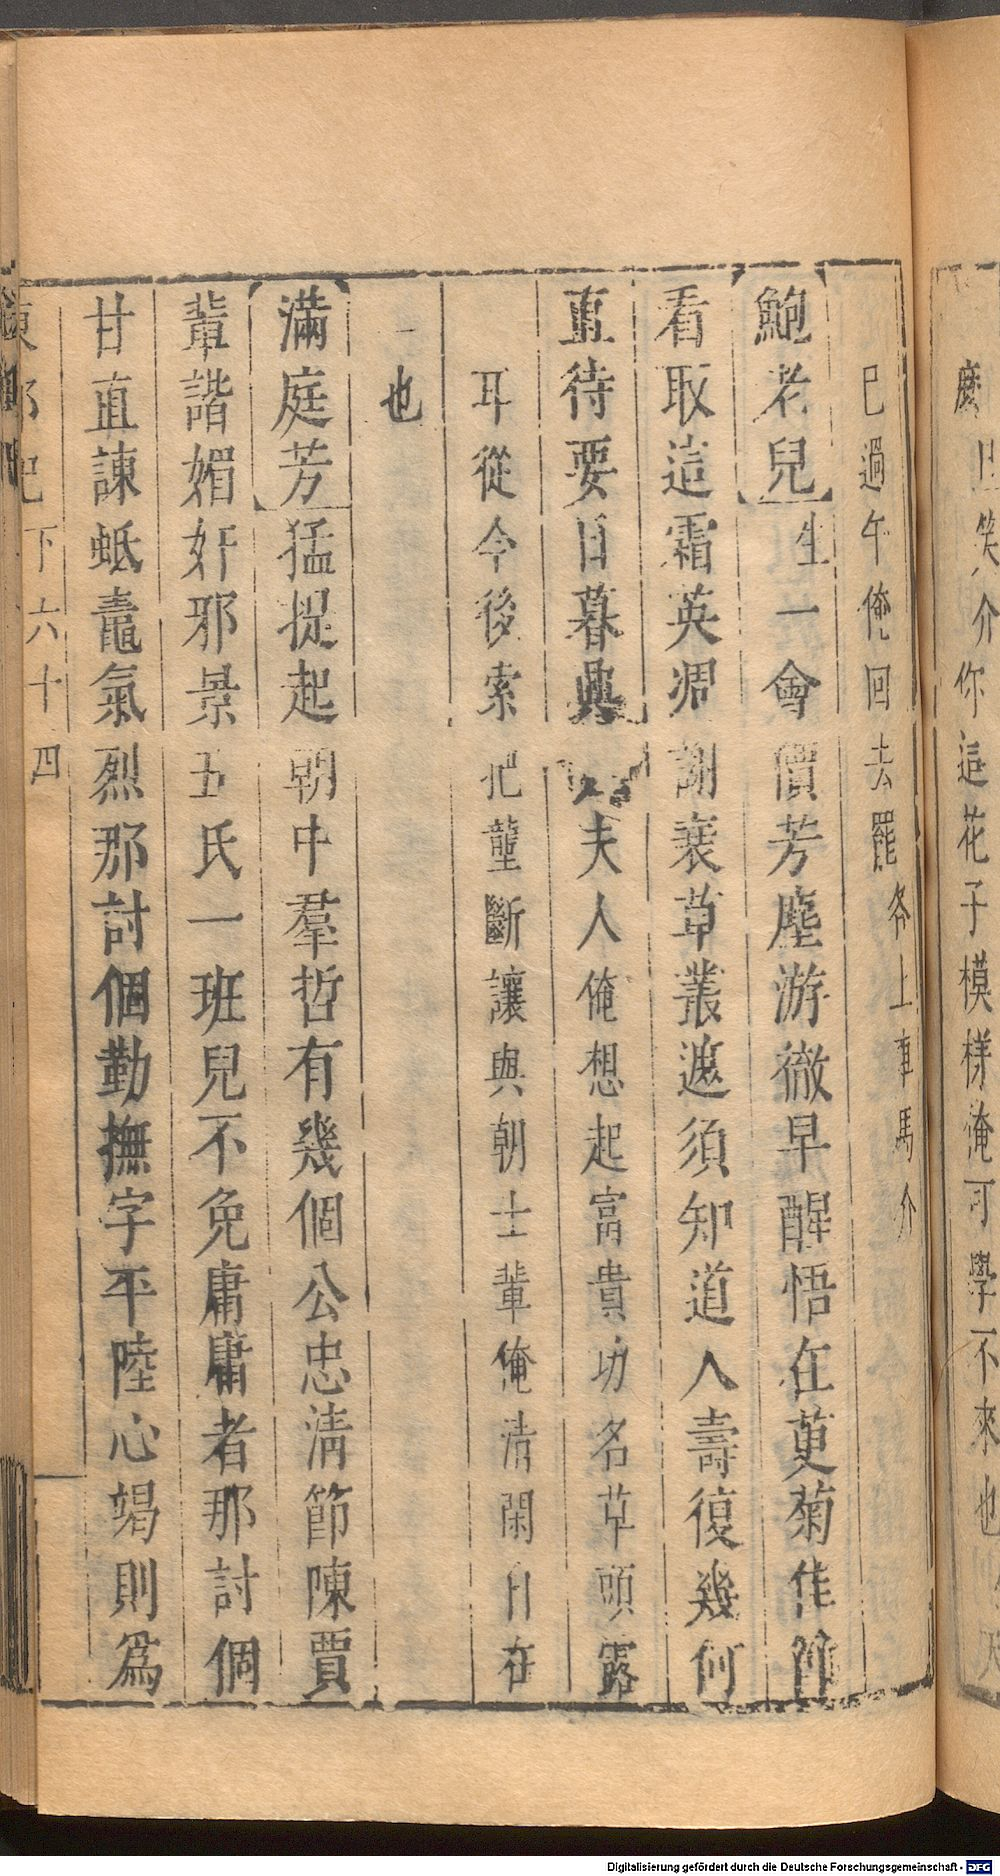 庭
笑介你這花子模樣俺可學不來也
已過午俺回去罷各上車馬介
鮑老兒生一會價芳塵游徽早醒悟在萸菊佳節
看取這霜英凋謝衰草叢邊須知道人壽復幾何
直待要日暮典
夫人俺想起富貴功名草頭露
耳從今後索把壟斷讓與朝士輩俺清閑自在
也
滿庭芳猛提起朝中羣哲有幾個公忠清節陳賈
輩諧媚奸邪景丑氏一班兒不免庸庸者那討個
甘直諫蚔鼃氣烈那討個勤撫字平陸心竭則爲
東郭記下六十四
Digitalisierung gefördert durch die Deutsche Forschungsgemeinschaft - DFG